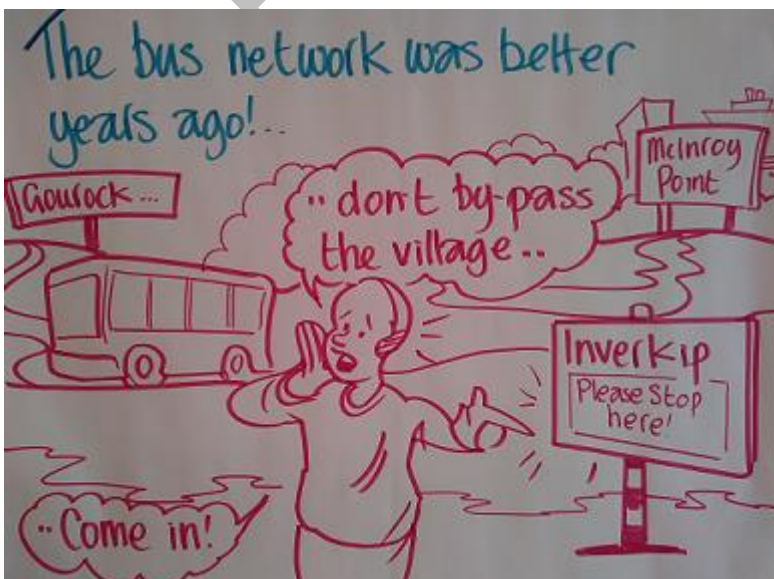 The bus network was better
years ago!..
Gourock...
McInroy
Point
..don't by-pass
the village..
Inverkip
Please Stop
here!
..Come in!